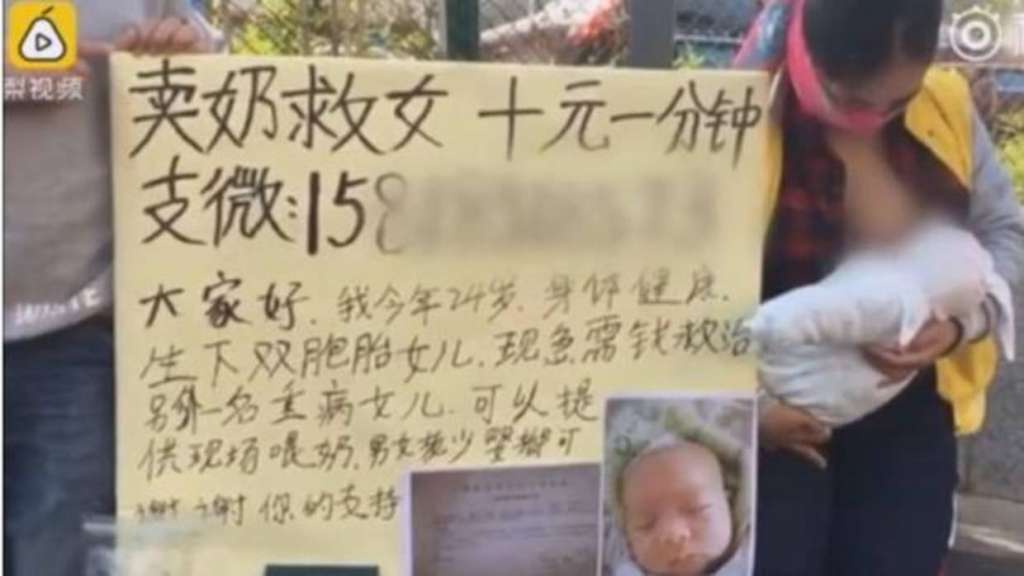 梨视频
卖奶救女 十元一分钟
支微:158
大家好.我今年24岁.身体健康.
生下双胞胎女儿.现急需钱救治
另外一名重病女儿.可以提
供现场喂奶.男女老少婴都可
谢谢你的支持